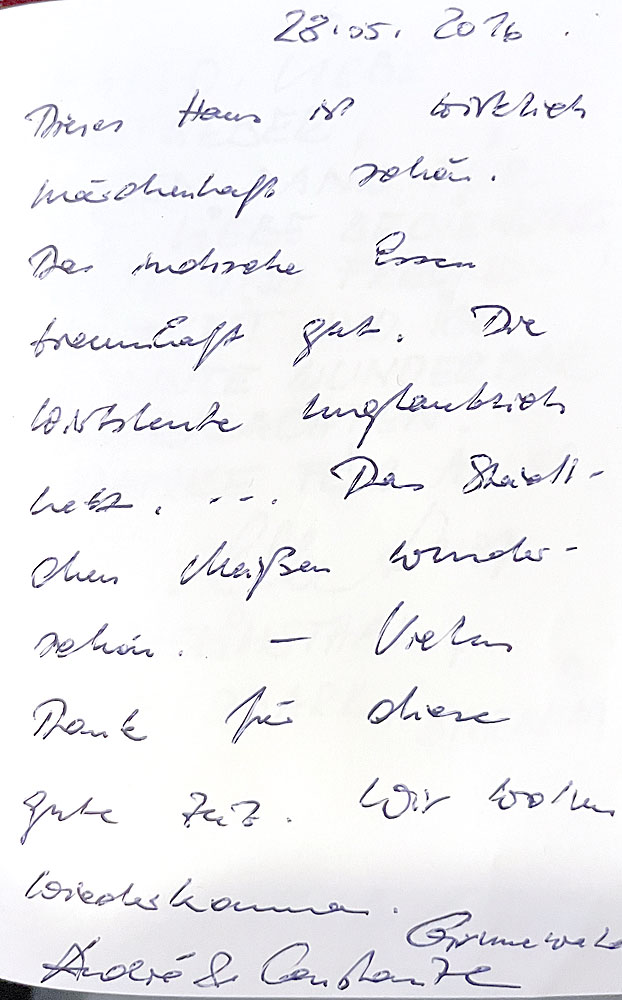 28.05.2016.
Dieses Haus ist wirklich
märchenhaft schön.
Das indische Essen
traumhaft gut. Die
Wirtsleute unglaublich
nett. --. Das Städt-
chen Meißen wunder-
schön. — Vielen
Dank für diese
gute Zeit. Wir wollen
wiederkommen.
Grünewald
André & Constanze